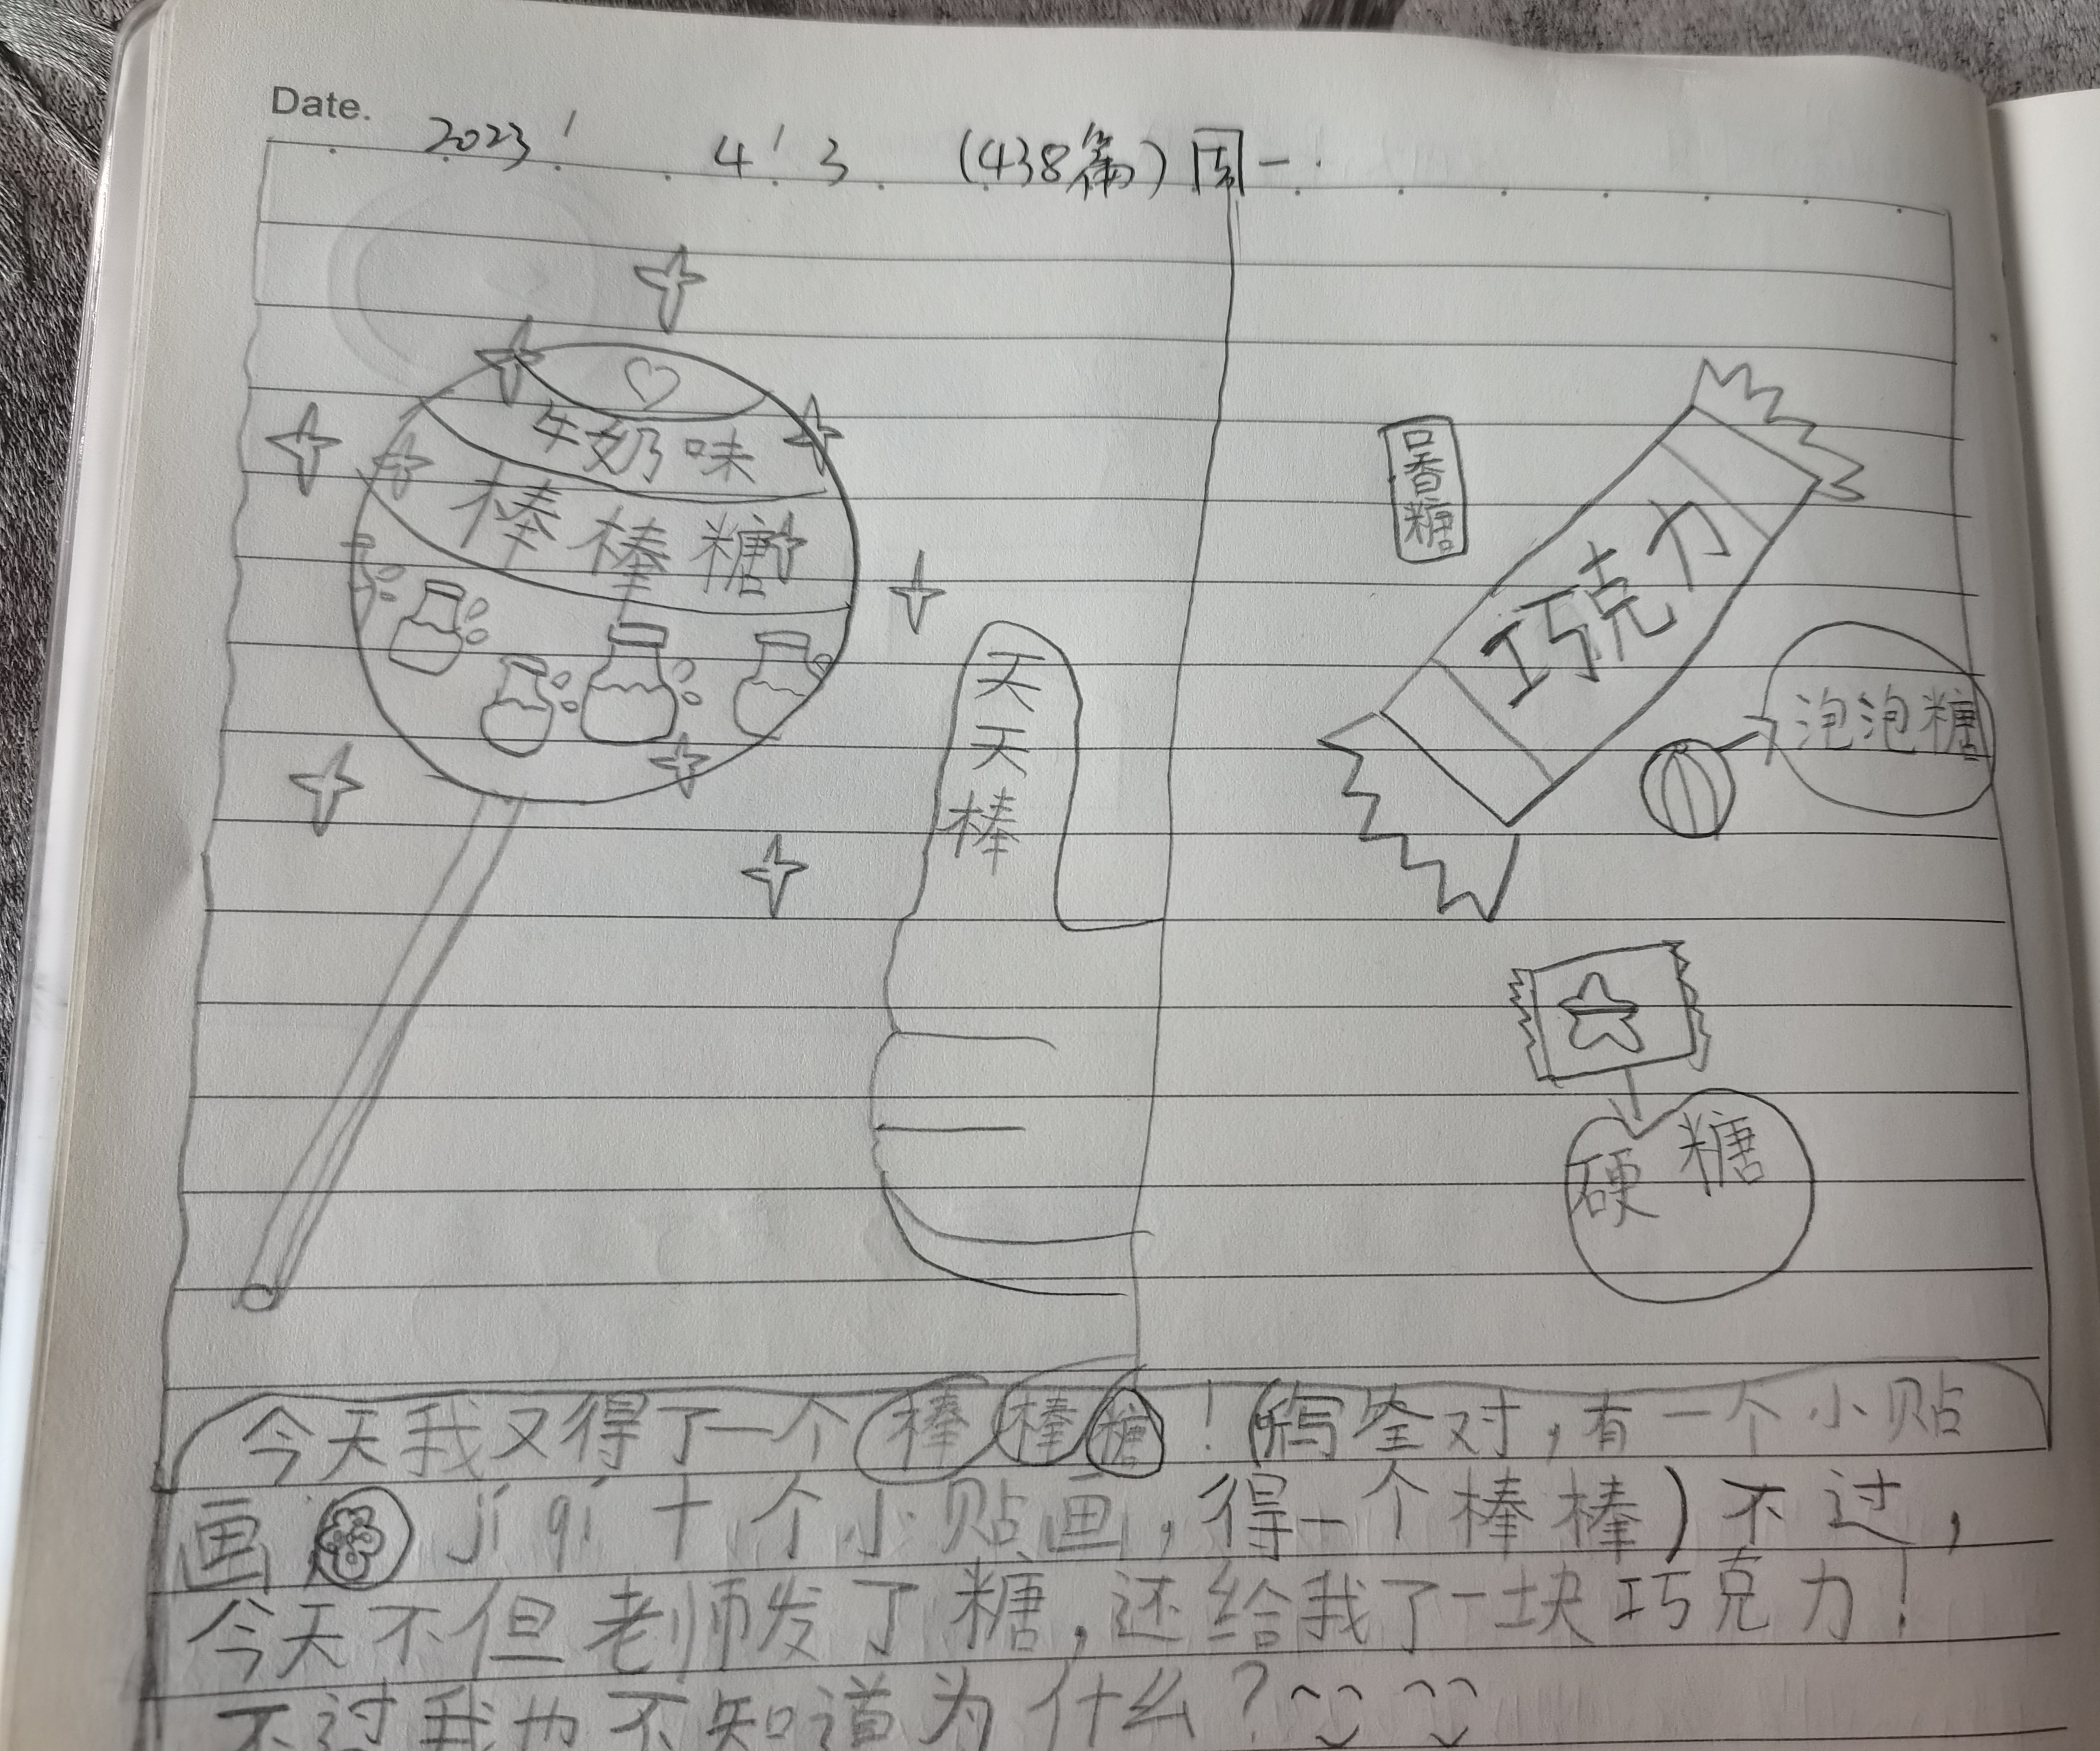 Date.
2023' 4' 3 (438篇) 周一
牛奶味
棒棒糖
天天棒
口香糖
巧克力
泡泡糖
硬糖
今天我又得了一个棒棒糖！(写全对，有一个小贴
画 jí qí 十个小贴画，得一个棒棒)不过，
今天不但老师发了糖，还给我了一块巧克力！
不过我也不知道为什么？